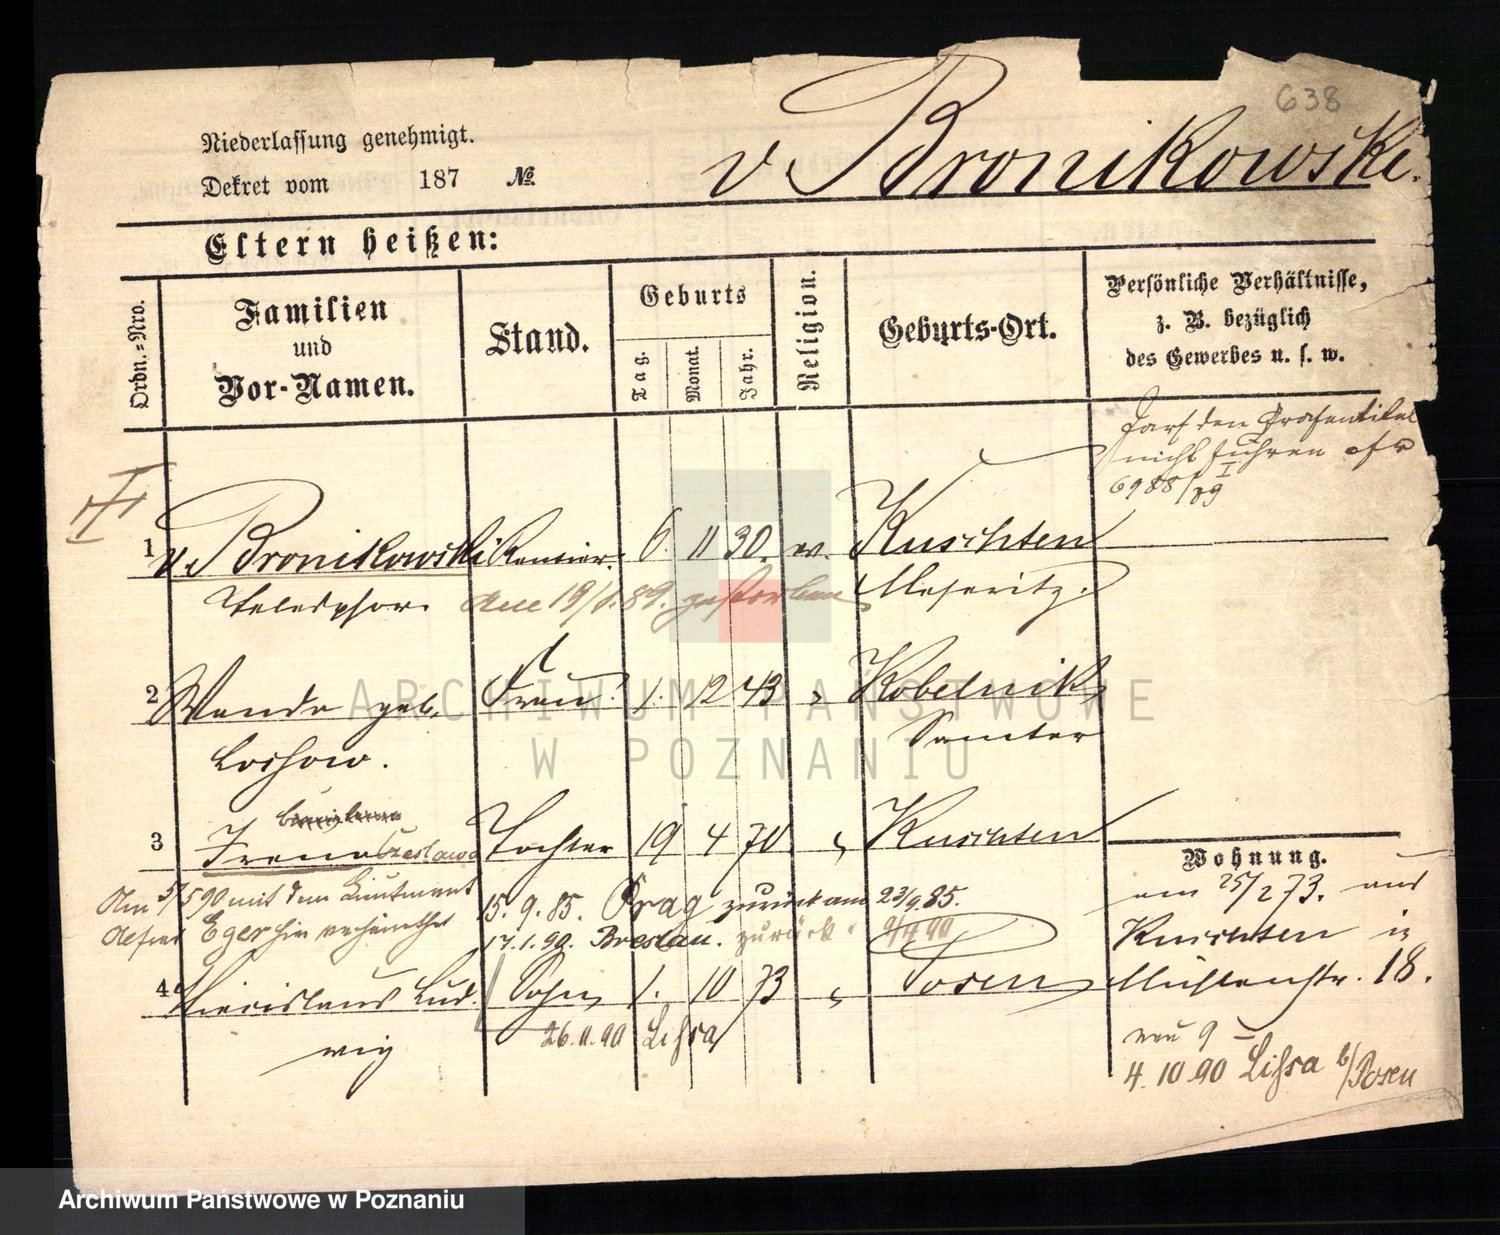 638
v. Bronikowski.
Niederlassung genehmigt.
Dekret vom 187 №.
Eltern heißen:
Ordn.-Nro.
Familien
und
Vor-Namen.
Stand.
Geburts
Tag.
Monat.
Jahr.
Religion.
Geburts-Ort.
Persönliche Verhältnisse,
z. B. bezüglich
des Gewerbes u. s. w.
darf den
nicht führen
6988/89 I
1 v. Bronikowski Rentier. 6. 11 30. Kuschten
Telesphor. Am 19/ .89. gestorben Meseritz.
2 Wanda geb. Frau 1. 12 43 Kobelnik
Loschow. Samter
3 Irena Czeslawa Tochter 19 4 70 Kuschten
Am 5/5 90 mit dem Lieutenant
Eger hier verheirathet
15. 9. 85. Prag zurück am 23/9. 85.
17.1.90. Breslau. zurück
4 Lud- Sohn 1. 10 73 Posen
wig 26.11.90 Lissa
Wohnung.
am 25/2 73. aus
Kuschten in
Mühlenstr. 18.
neu 9
4. 10 90 Lissa b/Posen
ARCHIWUM PAŃSTWOWE
W POZNANIU
Archiwum Państwowe w Poznaniu